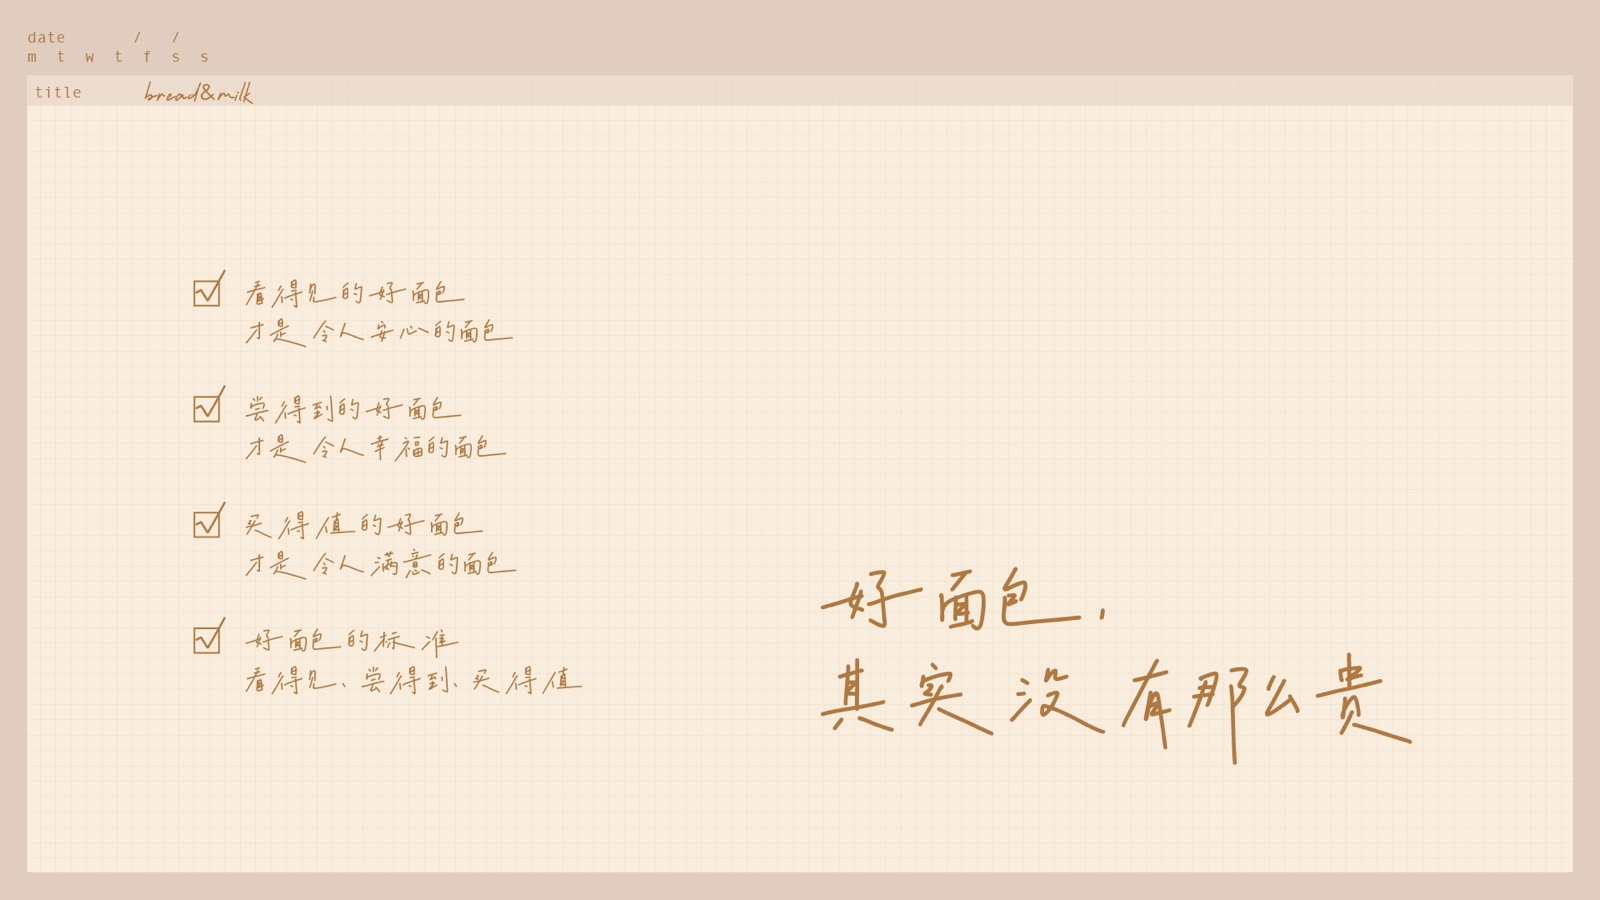 date / /
m t w t f s s
title bread&milk
看得见的好面包
才是令人安心的面包
尝得到的好面包
才是令人幸福的面包
买得值的好面包
才是令人满意的面包
好面包的标准
看得见、尝得到、买得值
好面包，
其实没有那么贵